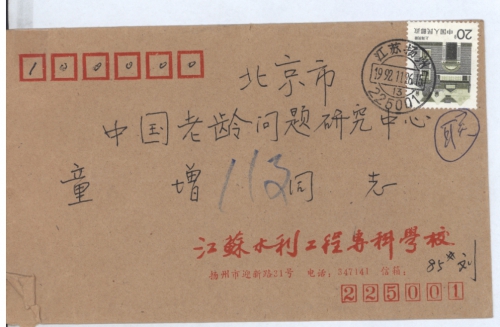 100000
20分
中国人民邮政
江苏扬州
1992.11.26.15
13
225001
北京市
中国老龄问题研究中心
童增 113 同志
江蘇水利工程專科學校
扬州市迎新路21号 电话：347141 信箱：85# 刘
225001